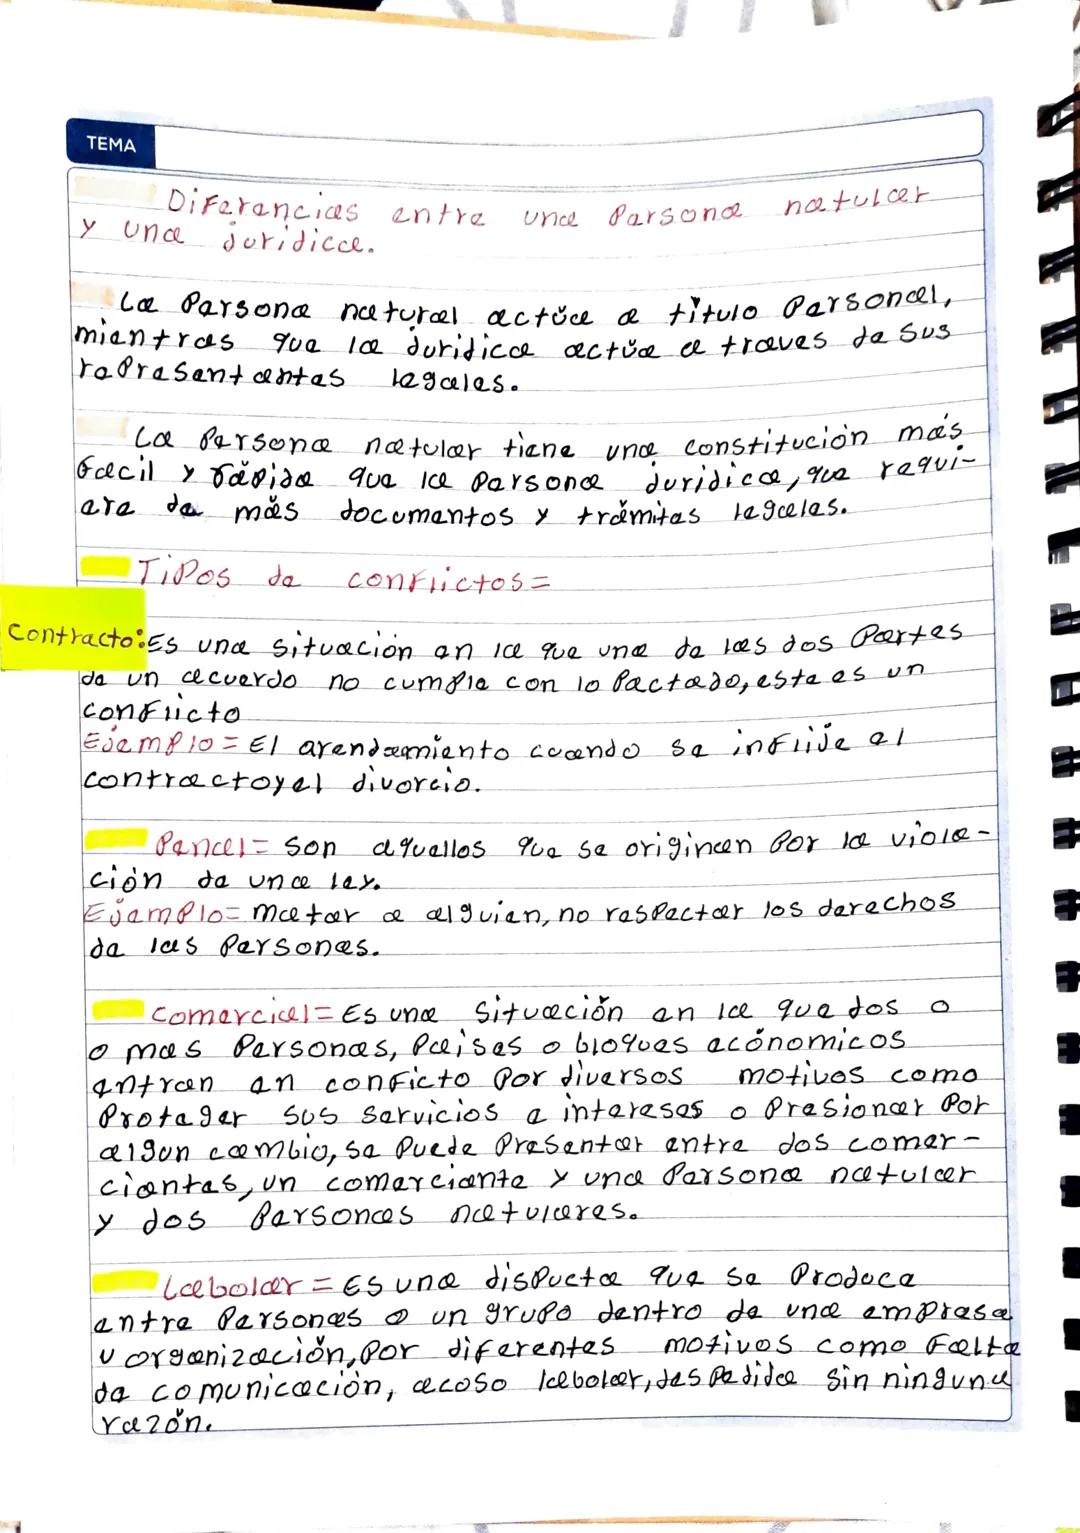 TEMA
Diferencias entre una Persona natular
y una juridica.
La Persona natural actúa a título Personal,
mientras que la juridica actúa a traves de sus
representantes legales.
La Persona natular tiene una constitución más
facil y rápida que la persona juridica, que requi-
ere de más documentos y trámites legales.
Tipos de conflictos=
Contracto: Es una situación en la que una de las dos Partes
de un acuerdo no cumple con lo Pactado, este es un
conflicto
Ejemplo= El arendamiento cuando se inflije el
contracto y el divorcio.
Penal= Son aquellos que se originan Por la viola-
ción de una ley.
Ejemplo= matar a alguien, no respectar los derechos
de las Personas.
Comercial= Es una situación en la que dos o
o mas Personas, Paises o bloques acónomicos
entran en conficto Por diversos motivos como
Proteger sus servicios e intereses o Presionar Por
algun cambio, se Puede Presentar entre dos comer-
ciantes, un comerciante y una Persona natular
y dos Personas natulares.
Labolar = Es una dispucta que se Produce
entre Personas o un grupo dentro de una empresa
u organización, Por diferentes motivos como Falta
de comunicación, acoso labolar, despedida sin ninguna
razón.